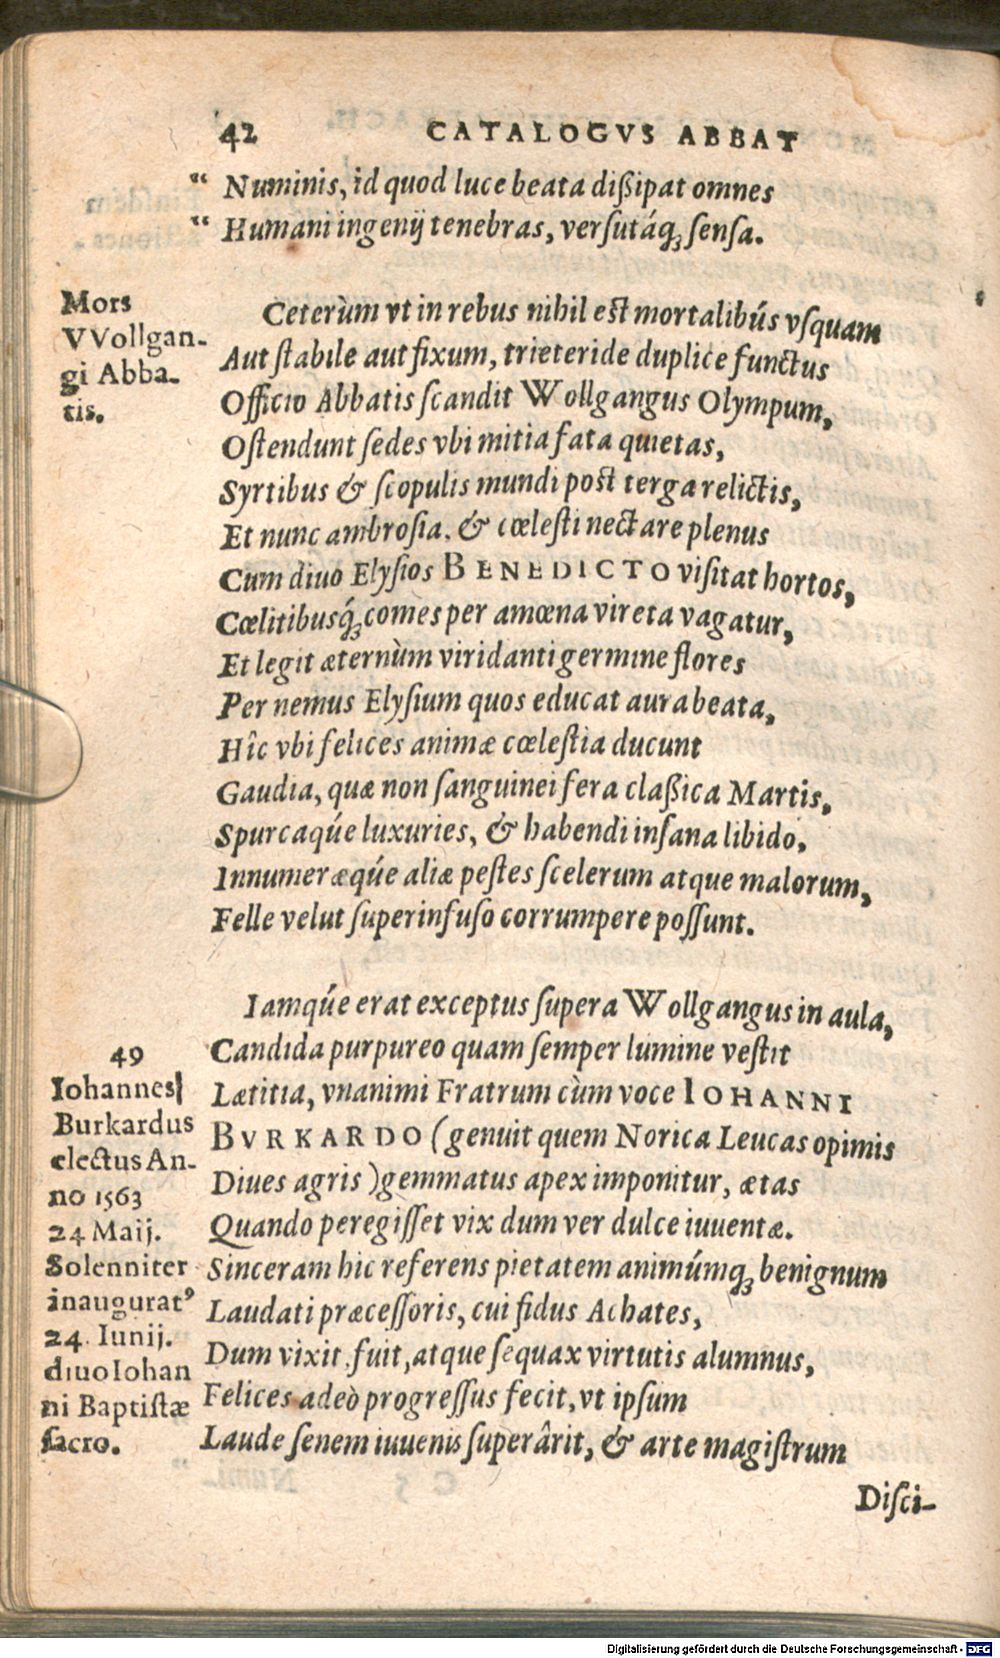 42 CATALOGVS ABBAT
“ Numinis, id quod luce beata dißipat omnes
“ Humani ingenij tenebras, verſutáq; ſenſa.
Mors
VVollgan-
gi Abba-
tis.
Ceterùm vt in rebus nihil est mortalibús vſquam
Aut ſtabile aut fixum, trieteride duplice functus
Officio Abbatis ſcandit Wollgangus Olympum,
Oſtendunt ſedes vbi mitia fata quietas,
Syrtibus & ſcopulis mundi post terga relictis,
Et nunc ambroſia, & cœleſti nectare plenus
Cum diuo Elyſios BENEDICTO viſitat hortos,
Cœlitibusq́; comes per amœna vireta vagatur,
Et legit æternùm viridanti germine flores
Per nemus Elyſium quos educat aura beata,
Hîc vbi felices animæ cœleſtia ducunt
Gaudia, quæ non ſanguinei fera claßica Martis,
Spurcaqúe luxuries, & habendi inſana libido,
Innumeræqúe aliæ peſtes ſcelerum atque malorum,
Felle velut ſuperinfuſo corrumpere poſſunt.
Iamqúe erat exceptus ſupera Wollgangus in aula,
Candida purpureo quam ſemper lumine veſtit
Lætitia, vnanimi Fratrum cùm voce IOHANNI
BVRKARDO (genuit quem Norica Leucas opimis
Diues agris) gemmatus apex imponitur, ætas
Quando peregiſſet vix dum ver dulce iuuentæ.
Sinceram hic referens pietatem animúmq; benignum
Laudati præceſſoris, cui fidus Achates,
Dum vixit, fuit, atque ſequax virtutis alumnus,
Felices adeò progreſſus fecit, vt ipſum
Laude ſenem iuuenis ſuperârit, & arte magiſtrum
49
Iohannes
Burkardus
electus An-
no 1563
24 Maij.
Solenniter
inauguratꝰ
24. Iunij.
diuo Iohan
ni Baptiſtæ
ſacro.
Diſci-
Digitalisierung gefördert durch die Deutsche Forschungsgemeinschaft - DFG